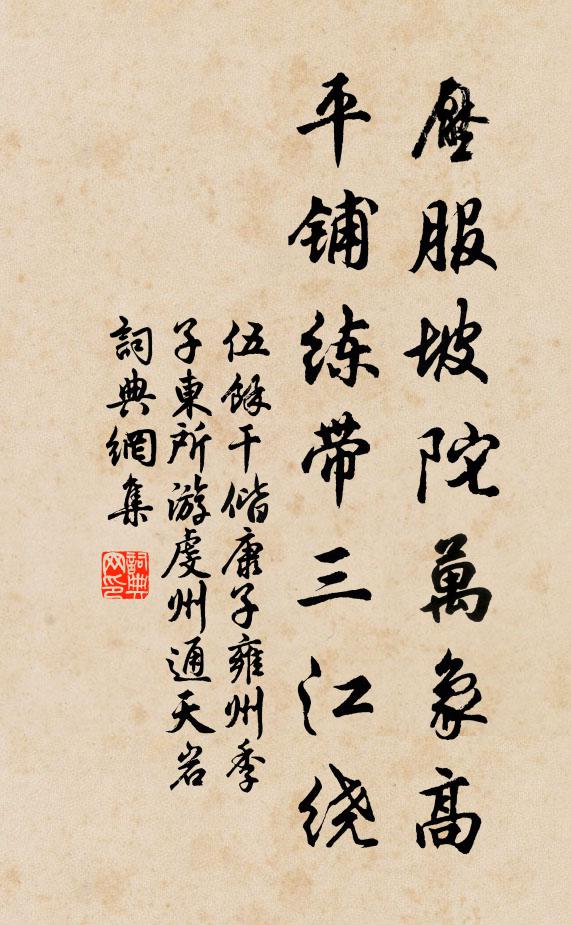 壓服坡陀萬象高
平铺练带三江绕
伍餘干偕康子雍州季
子東所游虔州通天岩
詞典網集
詞典网印